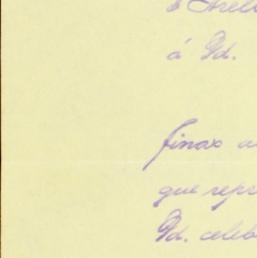 á Vd.
finas a
que repr
Vd. celeb